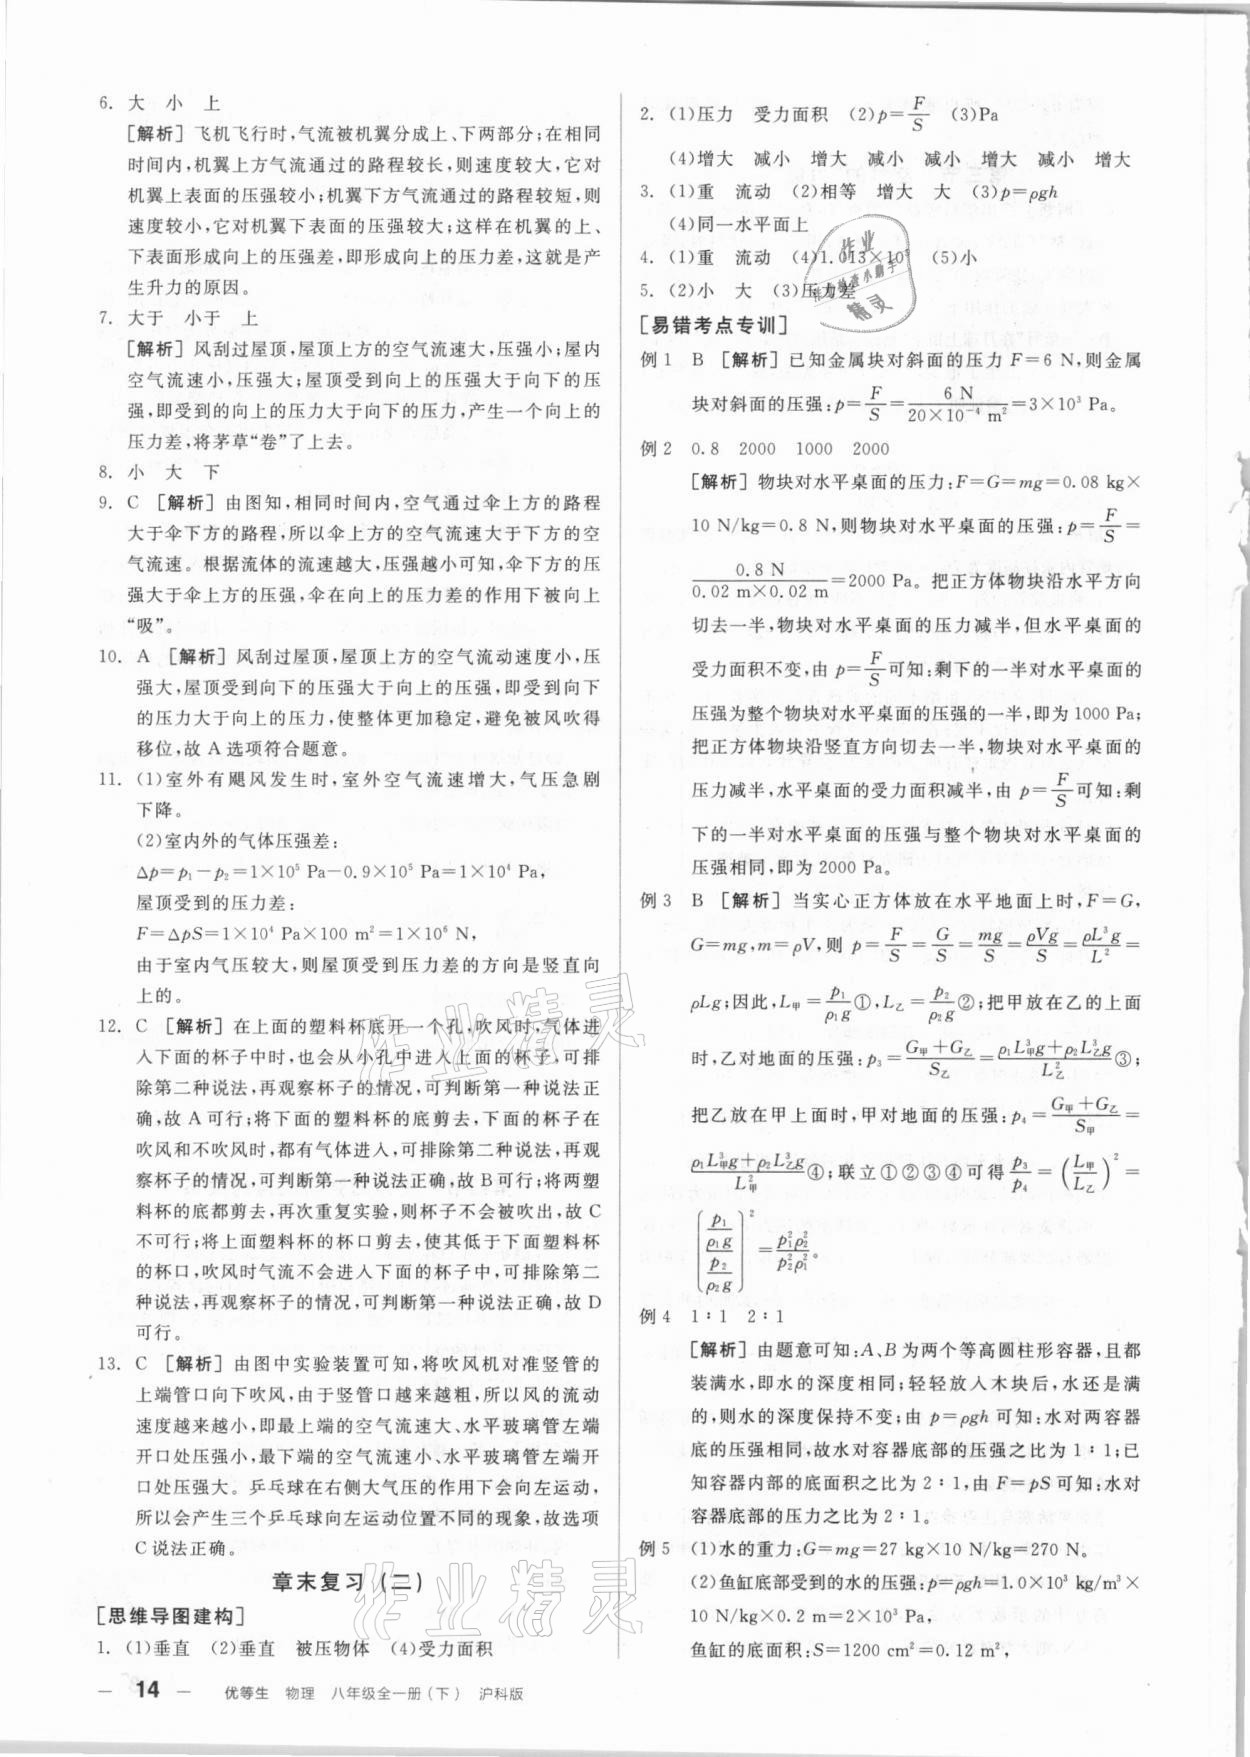 6. 大 小 上
[解析]飞机飞行时,气流被机翼分成上、下两部分;在相同
时间内,机翼上方气流通过的路程较长,则速度较大,它对
机翼上表面的压强较小;机翼下方气流通过的路程较短,则
速度较小,它对机翼下表面的压强较大;这样在机翼的上、
下表面形成向上的压强差,即形成向上的压力差,这就是产
生升力的原因。
7. 大于 小于 上
[解析]风刮过屋顶,屋顶上方的空气流速大,压强小;屋内
空气流速小,压强大;屋顶受到向上的压强大于向下的压
强,即受到的向上的压力大于向下的压力,产生一个向上的
压力差,将茅草“卷”了上去。
8. 小 大 下
9. C [解析]由图知,相同时间内,空气通过伞上方的路程
大于伞下方的路程,所以伞上方的空气流速大于下方的空
气流速。根据流体的流速越大,压强越小可知,伞下方的压
强大于伞上方的压强,伞在向上的压力差的作用下被向上
“吸”。
10. A [解析]风刮过屋顶,屋顶上方的空气流动速度小,压
强大,屋顶受到向下的压强大于向上的压强,即受到向下
的压力大于向上的压力,使整体更加稳定,避免被风吹得
移位,故 A 选项符合题意。
11. (1)室外有飓风发生时,室外空气流速增大,气压急剧
下降。
(2)室内外的气体压强差:
Δp=p₁-p₂=1×10⁵ Pa-0.9×10⁵ Pa=1×10⁴ Pa,
屋顶受到的压力差:
F=ΔpS=1×10⁴ Pa×100 m²=1×10⁶ N,
由于室内气压较大,则屋顶受到压力差的方向是竖直向
上的。
12. C [解析]在上面的塑料杯底开一个孔,吹风时,气体进
入下面的杯子中时,也会从小孔中进入上面的杯子,可排
除第二种说法,再观察杯子的情况,可判断第一种说法正
确,故 A 可行;将下面的塑料杯的底剪去,下面的杯子在
吹风和不吹风时,都有气体进入,可排除第二种说法,再观
察杯子的情况,可判断第一种说法正确,故 B 可行;将两塑
料杯的底都剪去,再次重复实验,则杯子不会被吹出,故 C
不可行;将上面塑料杯的杯口剪去,使其低于下面塑料杯
的杯口,吹风时气流不会进入下面的杯子中,可排除第二
种说法,再观察杯子的情况,可判断第一种说法正确,故 D
可行。
13. C [解析]由图中实验装置可知,将吹风机对准竖管的
上端管口向下吹风,由于竖管口越来越粗,所以风的流动
速度越来越小,即最上端的空气流速大、水平玻璃管左端
开口处压强小,最下端的空气流速小、水平玻璃管左端开
口处压强大。乒乓球在右侧大气压的作用下会向左运动,
所以会产生三个乒乓球向左运动位置不同的现象,故选项
C说法正确。
章末复习(二)
[思维导图建构]
1. (1)垂直 (2)垂直 被压物体 (4)受力面积
2. (1)压力 受力面积 (2)p=F/S (3)Pa
(4)增大 减小 增大 减小 减小 增大 减小 增大
3. (1)重 流动 (2)相等 增大 大 (3)p=ρgh
(4)同一水平面上
4. (1)重 流动 (4)1.013×10⁵ (5)小
5. (2)小 大 (3)压力差
[易错考点专训]
例1 B [解析]已知金属块对斜面的压力 F=6 N,则金属
块对斜面的压强:p=F/S=6 N/(20×10⁻⁴ m²)=3×10³ Pa。
例2 0.8 2000 1000 2000
[解析]物块对水平桌面的压力:F=G=mg=0.08 kg×
10 N/kg=0.8 N,则物块对水平桌面的压强:p=F/S=
0.8 N/(0.02 m×0.02 m)=2000 Pa。把正方体物块沿水平方向
切去一半,物块对水平桌面的压力减半,但水平桌面的
受力面积不变,由 p=F/S可知:剩下的一半对水平桌面的
压强为整个物块对水平桌面的压强的一半,即为1000 Pa;
把正方体物块沿竖直方向切去一半,物块对水平桌面的
压力减半,水平桌面的受力面积减半,由 p=F/S可知:剩
下的一半对水平桌面的压强与整个物块对水平桌面的
压强相同,即为2000 Pa。
例3 B [解析]当实心正方体放在水平地面上时,F=G,
G=mg,m=ρV,则 p=F/S=G/S=mg/S=ρVg/S=ρL³g/L²=
ρLg;因此,L甲=p₁/(ρ₁g)①,L乙=p₂/(ρ₂g)②;把甲放在乙的上面
时,乙对地面的压强:p₃=(G甲+G乙)/S乙=(ρ₁L³甲g+ρ₂L³乙g)/L²乙③;
把乙放在甲上面时,甲对地面的压强:p₄=(G甲+G乙)/S甲=
(ρ₁L³甲g+ρ₂L³乙g)/L²甲④;联立①②③④可得p₃/p₄=(L甲/L乙)²=
((p₁/(ρ₁g))/(p₂/(ρ₂g)))²=p₁²ρ₂²/(p₂²ρ₁²)。
例4 1∶1 2∶1
[解析]由题意可知:A、B为两个等高圆柱形容器,且都
装满水,即水的深度相同;轻轻放入木块后,水还是满
的,则水的深度保持不变;由 p=ρgh 可知:水对两容器
底的压强相同,故水对容器底部的压强之比为 1∶1;已
知容器内部的底面积之比为 2∶1,由 F=pS 可知:水对
容器底部的压力之比为 2∶1。
例5 (1)水的重力:G=mg=27 kg×10 N/kg=270 N。
(2)鱼缸底部受到的水的压强:p=ρgh=1.0×10³ kg/m³×
10 N/kg×0.2 m=2×10³ Pa,
鱼缸的底面积:S=1200 cm²=0.12 m²,
— 14 — 优等生 物理 八年级全一册(下) 沪科版
作业精灵
作业精灵
作业
精灵